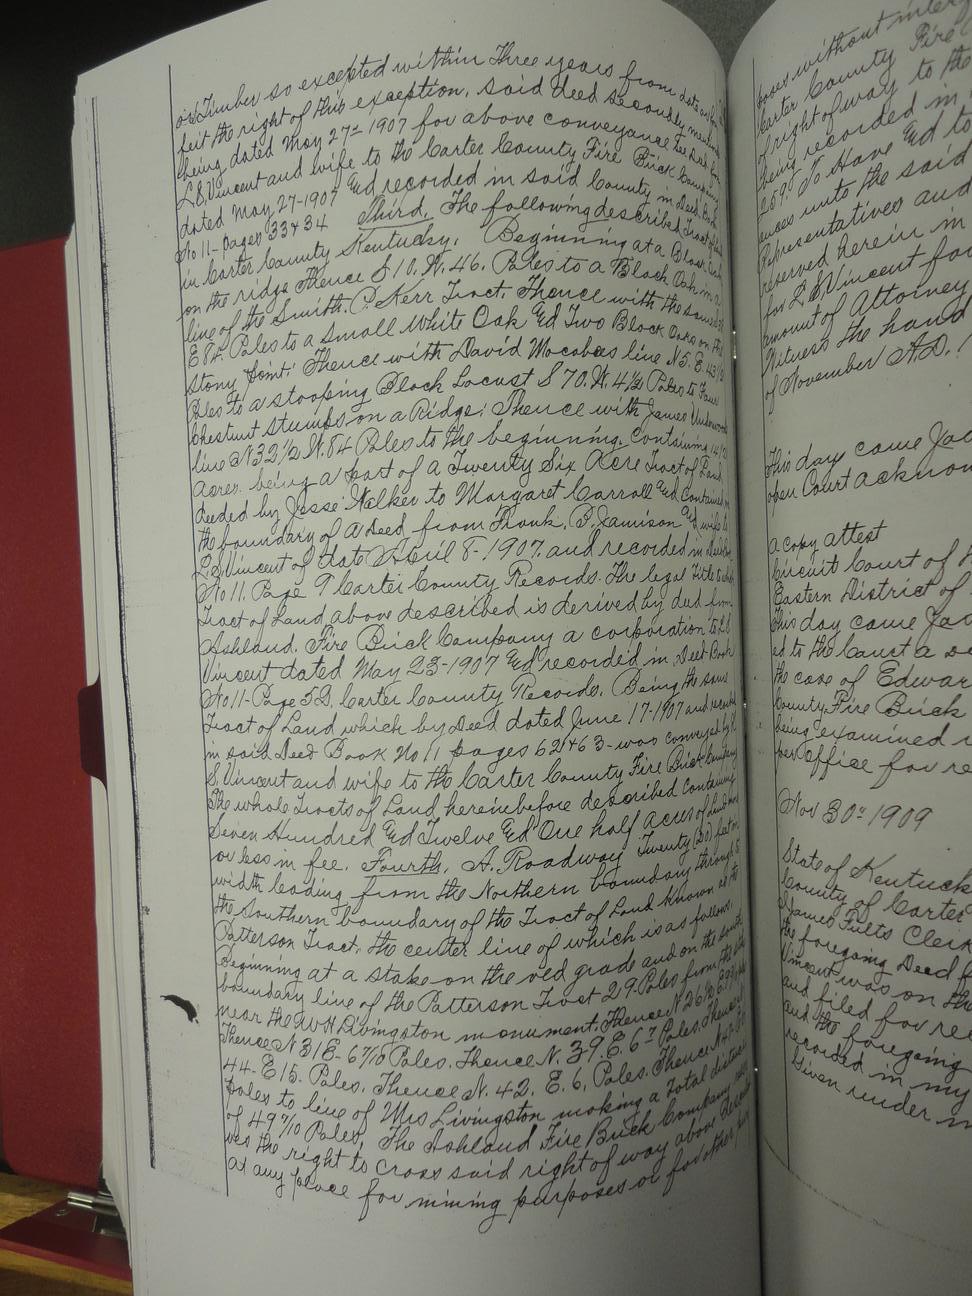 or Timber so excepted within Three years from date or for
feit the right of this exception, said deed secondly mentioned
being dated May 27th 1907 for above conveyance see deed from
L.S. Vincent and wife to the Carter County Fire Brick Company
dated May 27-1907 and recorded in said County in Deed Book
No 11-pages 33 & 34 Third, The following described Tract of Land
in Carter County Kentucky. Beginning at a Black Oak
on the ridge thence S 10. W. 46. Poles to a Black Oak in a
line of the Smith. P. Kerr Tract, Thence with the same S.
E 84. Poles to a Small White Oak and Two Black Oaks on the
Stony Point: Thence with David Mocabees line N 5. E. 43 1/2
Poles to a stooping Black Locust S 70. W. 4 1/2 Poles to Four
Chestnut stumps on a Ridge; Thence with James Underwoods
line N 32 1/2 W. 84 Poles to the beginning. Containing 14 1/2
Acres. being a part of a Twenty Six Acre Tract of Land
deeded by Jesse Walker to Margaret Carroll and contained in
the boundary of a Deed from Frank. P. Jamison and wife to
L.S. Vincent of date April 8-1907. and recorded in Deed Book
No 11. Page 9 Carter County Records. The legal Title to which
Tract of Land above described is derived by deed from
Ashland. Fire Brick Company a corporation to L.S.
Vincent dated May 23-1907 and recorded in Deed Book
No 11-Page 52. Carter County Records. Being the same
Tract of Land which by Deed dated June 17-1907 and recorded
in said Deed Book No 11 pages 62 & 63-was conveyed by
S. Vincent and wife to the Carter County Fire Brick Company
The whole Tracts of Land hereinbefore described containing
Seven Hundred and Twelve and One half acres of Land more
or less in fee. Fourth, A. Roadway Twenty (20) feet in
width leading from the Northern boundary through to
the Southern boundary of the Tract of Land known as the
Patterson Tract, the center line of which is as follows,
Beginning at a stake on the red grade and on the south
boundary line of the Patterson Tract 29. Poles from the
near the W H Livingston monument. Thence N 26
Thence N 31 E- 6 7/10 Poles. Thence N. 39. E. 6 Poles. Thence N
44. E 15. Poles. Thence N. 42. E. 6. Poles. Thence N
poles to line of Mrs Livingston making a total distance
of 49 7/10 Poles. The Ashland Fire Brick Company
ves the right to cross said right of way above described
at any place for mining purposes or for other pur
poses without
Carter County Fire
right of way to the
being recorded in
259. To Have and to
ances unto the said
Representatives and
reserved herein in
for L S Vincent for
amount of Attorney
Witness the hand
of November A.D. 1
This day came Jac
open Court acknow
a copy attest
Circuit Court of
Eastern District of
This day came Jac
ed to the Court a
the case of Edwar
County Fire Brick
being examined
per Office for re
Nov 30th 1909
State of Kentucky
County of Carter
James Fults Clerk
the foregoing Deed
Vincent was on the
and filed for rec
and the foregoing
recorded in my
Given under m